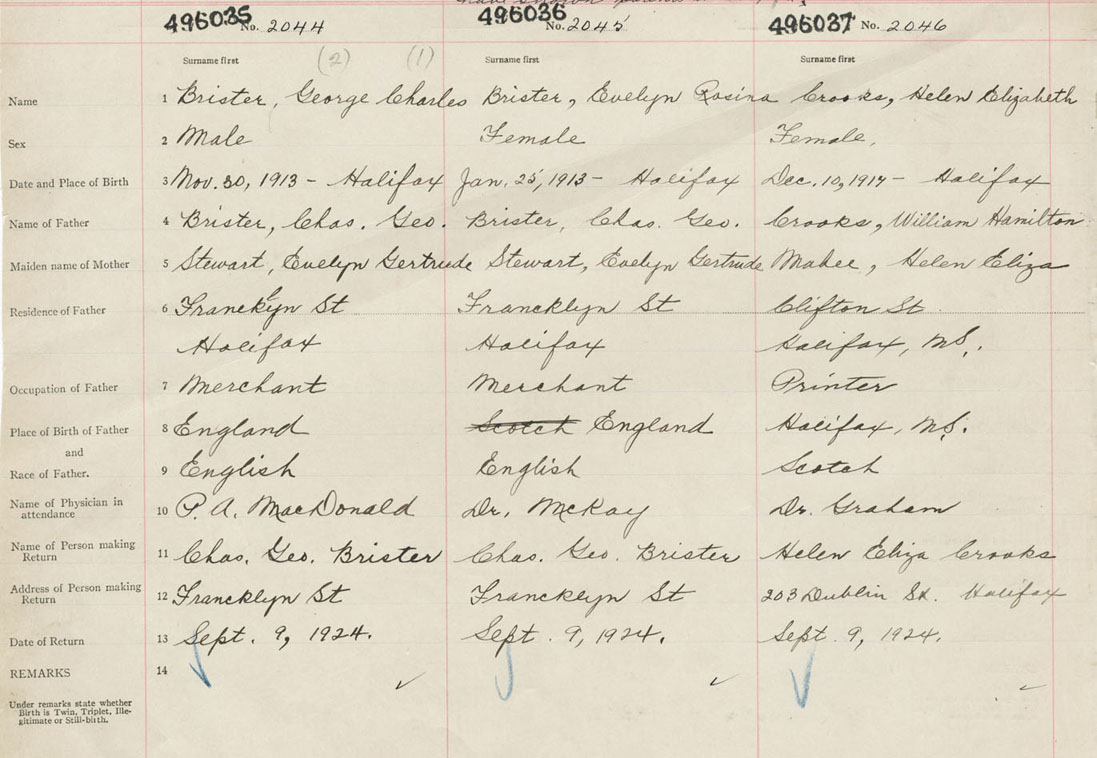 496035 No. 2044 496036 No. 2045 496037 No. 2046
Surname first (2) (1) Surname first Surname first
Name 1 Brister, George Charles Brister, Evelyn Rosina Crooks, Helen Elizabeth
Sex 2 Male Female Female.
Date and Place of Birth 3 Nov. 30, 1913 - Halifax Jan. 25, 1913 - Halifax Dec. 10, 1914 - Halifax
Name of Father 4 Brister, Chas. Geo. Brister, Chas. Geo. Crooks, William Hamilton
Maiden name of Mother 5 Stewart, Evelyn Gertrude Stewart, Evelyn Gertrude , Helen Eliza
Residence of Father 6 Francklyn St Francklyn St Clifton St
Halifax Halifax Halifax, N.S.
Occupation of Father 7 Merchant Merchant Printer
Place of Birth of Father 8 England Scotch England Halifax, N.S.
and
Race of Father. 9 English English Scotch
Name of Physician in
attendance 10 P. A. MacDonald Dr. McKay Dr. Graham
Name of Person making
Return 11 Chas. Geo. Brister Chas. Geo. Brister Helen Eliza Crooks
Address of Person making
Return 12 Francklyn St Francklyn St 203 Dublin St. Halifax
Date of Return 13 Sept. 9, 1924. Sept. 9, 1924. Sept. 9, 1924.
REMARKS 14
Under remarks state whether
Birth is Twin, Triplet, Ille-
gitimate or Still-birth.